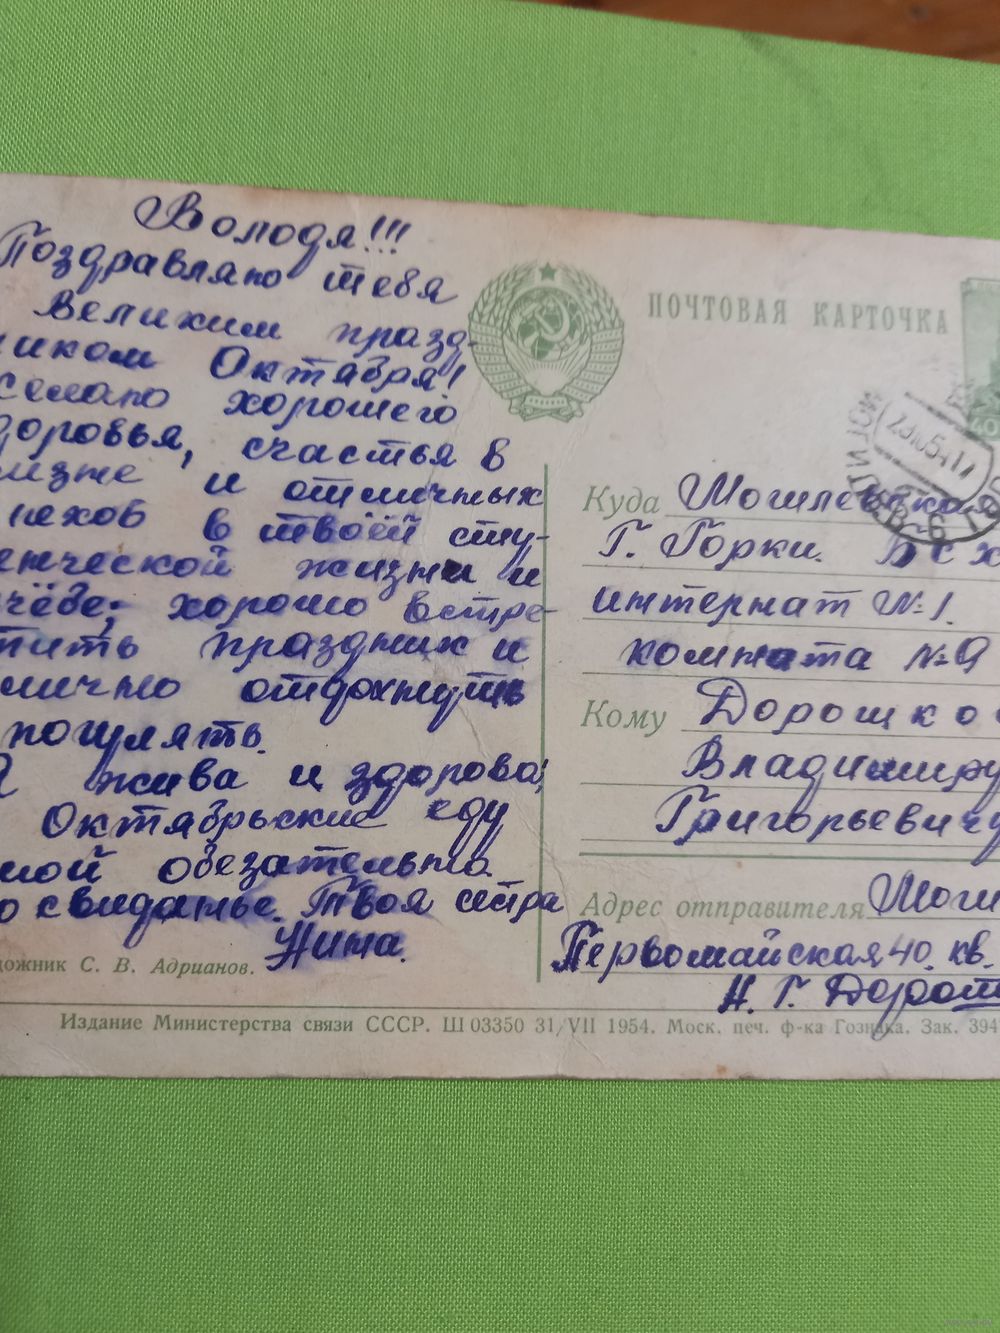 Володя!!!
Поздравляю тебя
Великим празд-
ником Октября!
желаю хорошего
здоровья, счастья в
жизни и отличных
успехов в твоей сту-
денческой жизни и
учёбе; хорошо встре-
тить праздник и
отлично отдохнуть
погулять.
Я жива и здорова;
Октябрьские еду
домой обезательно
до свиданье. Твоя сестра
Нина.
художник С. В. Адрианов.
ПОЧТОВАЯ КАРТОЧКА
40
Куда Могилевская
Г. Горки. БСХ
интернат №1.
комната №9
Кому Дорошко
Владимиру
Григорьевичу
Адрес отправителя Моги
Первомайская 40. кв.
Н. Г. Дорош
Издание Министерства связи СССР. Ш 03350 31/VII 1954. Моск. печ. ф-ка Гознака. Зак. 394